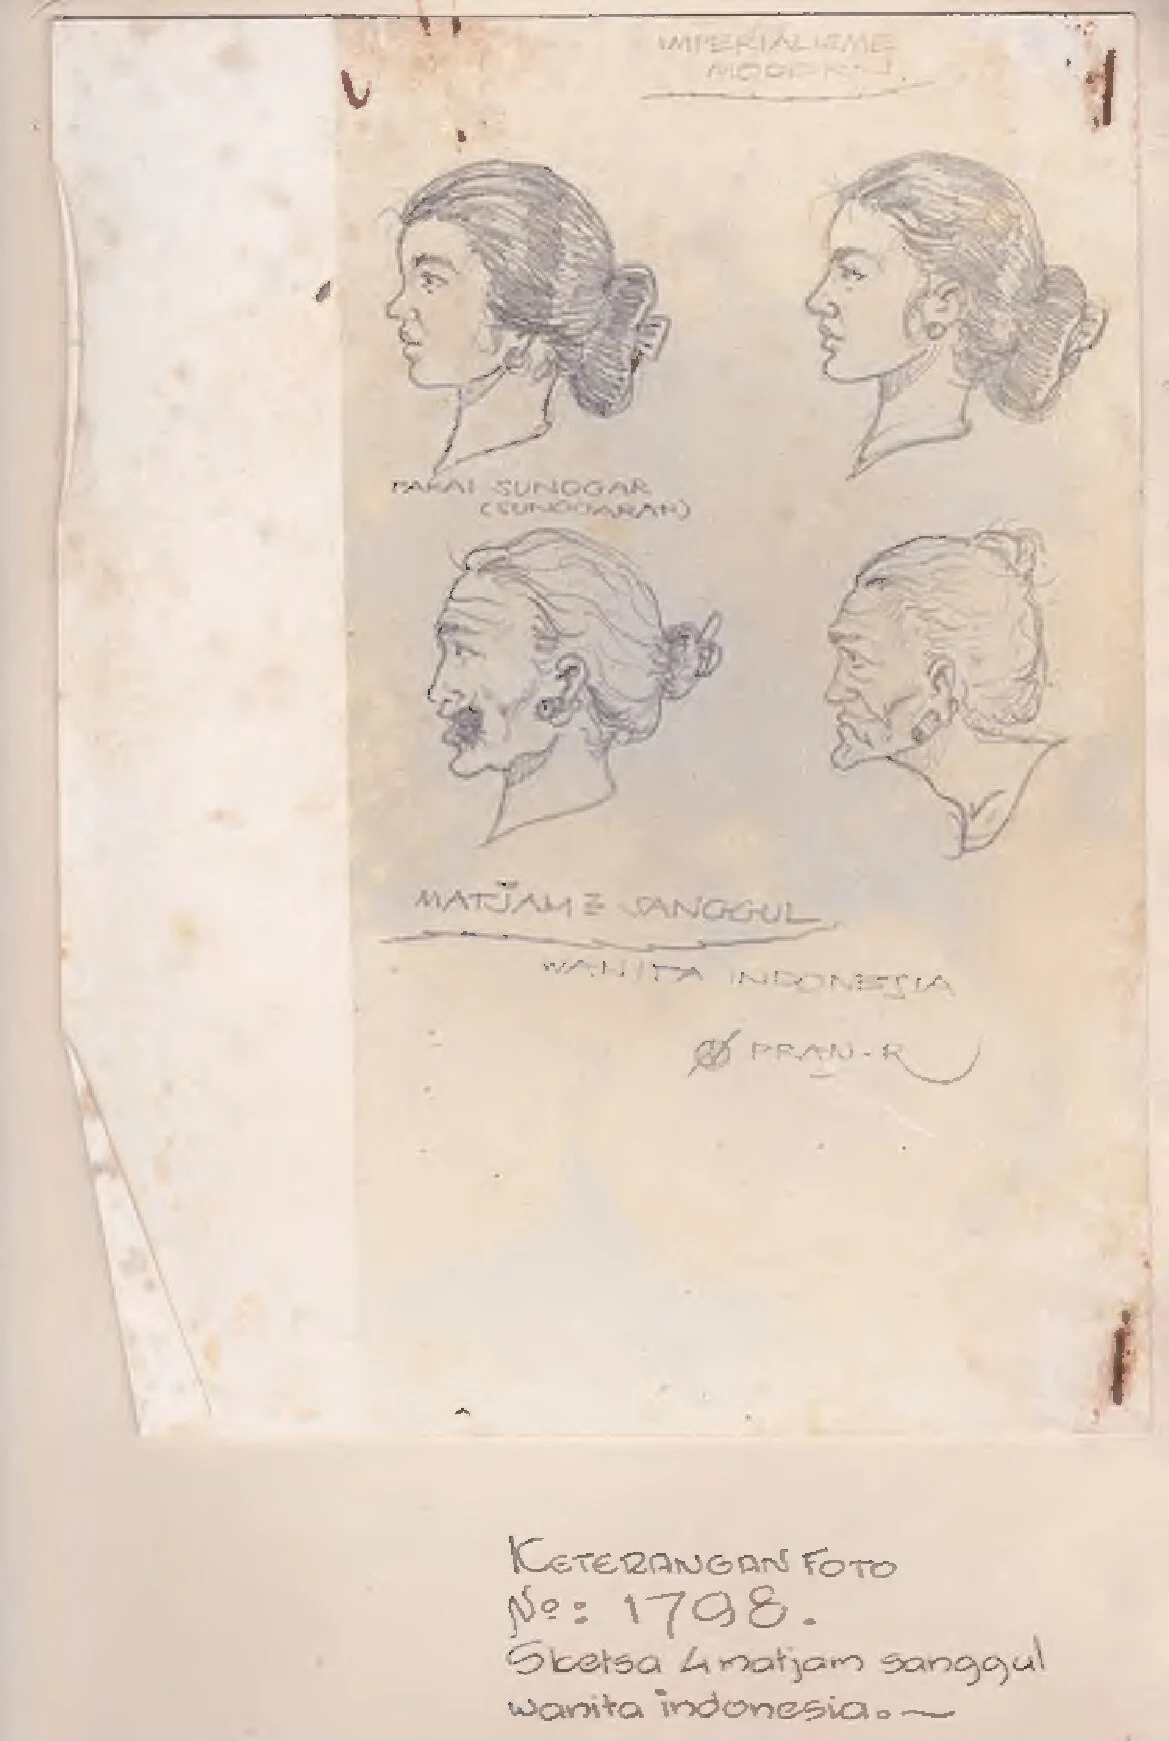 IMPERIALISME
MODERN.
PAKAI SUNGGAR
(SUNGGARAN)
MATJAM2 SANGGUL
WANITA INDONESIA
PRAN-R
KETERANGAN FOTO
No: 1798.
Sketsa 4 matjam sanggul
wanita indonesia.~